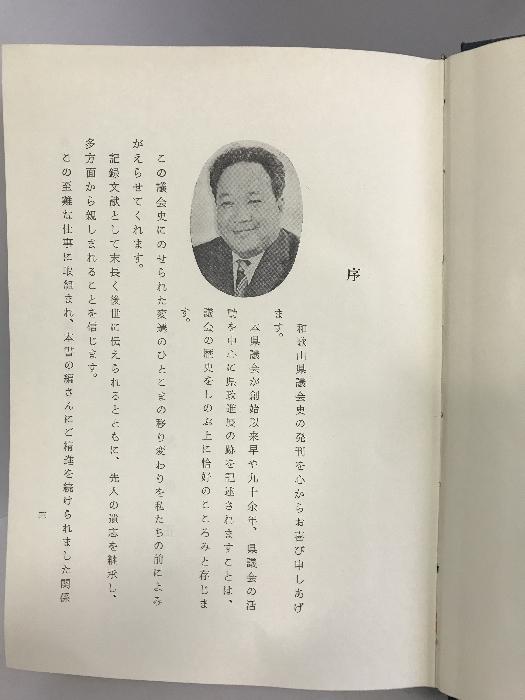 序
和歌山県議会史の発刊を心からお喜び申しあげ
ます。
本県議会が創始以来早や九十余年、県議会の活
動を中心に県政進展の跡を記述されますことは、
議会の歴史をしのぶ上に恰好のこころみと存じま
す。
この議会史にのせられた変遷のひとこまの移り変わりを私たちの前によみ
がえらせてくれます。
記録文献として末長く後世に伝えられるとともに、先人の遺志を継承し、
多方面から親しまれることを信じます。
この至難な仕事に取組まれ、本書の編さんにご精進を続けられました関係
三